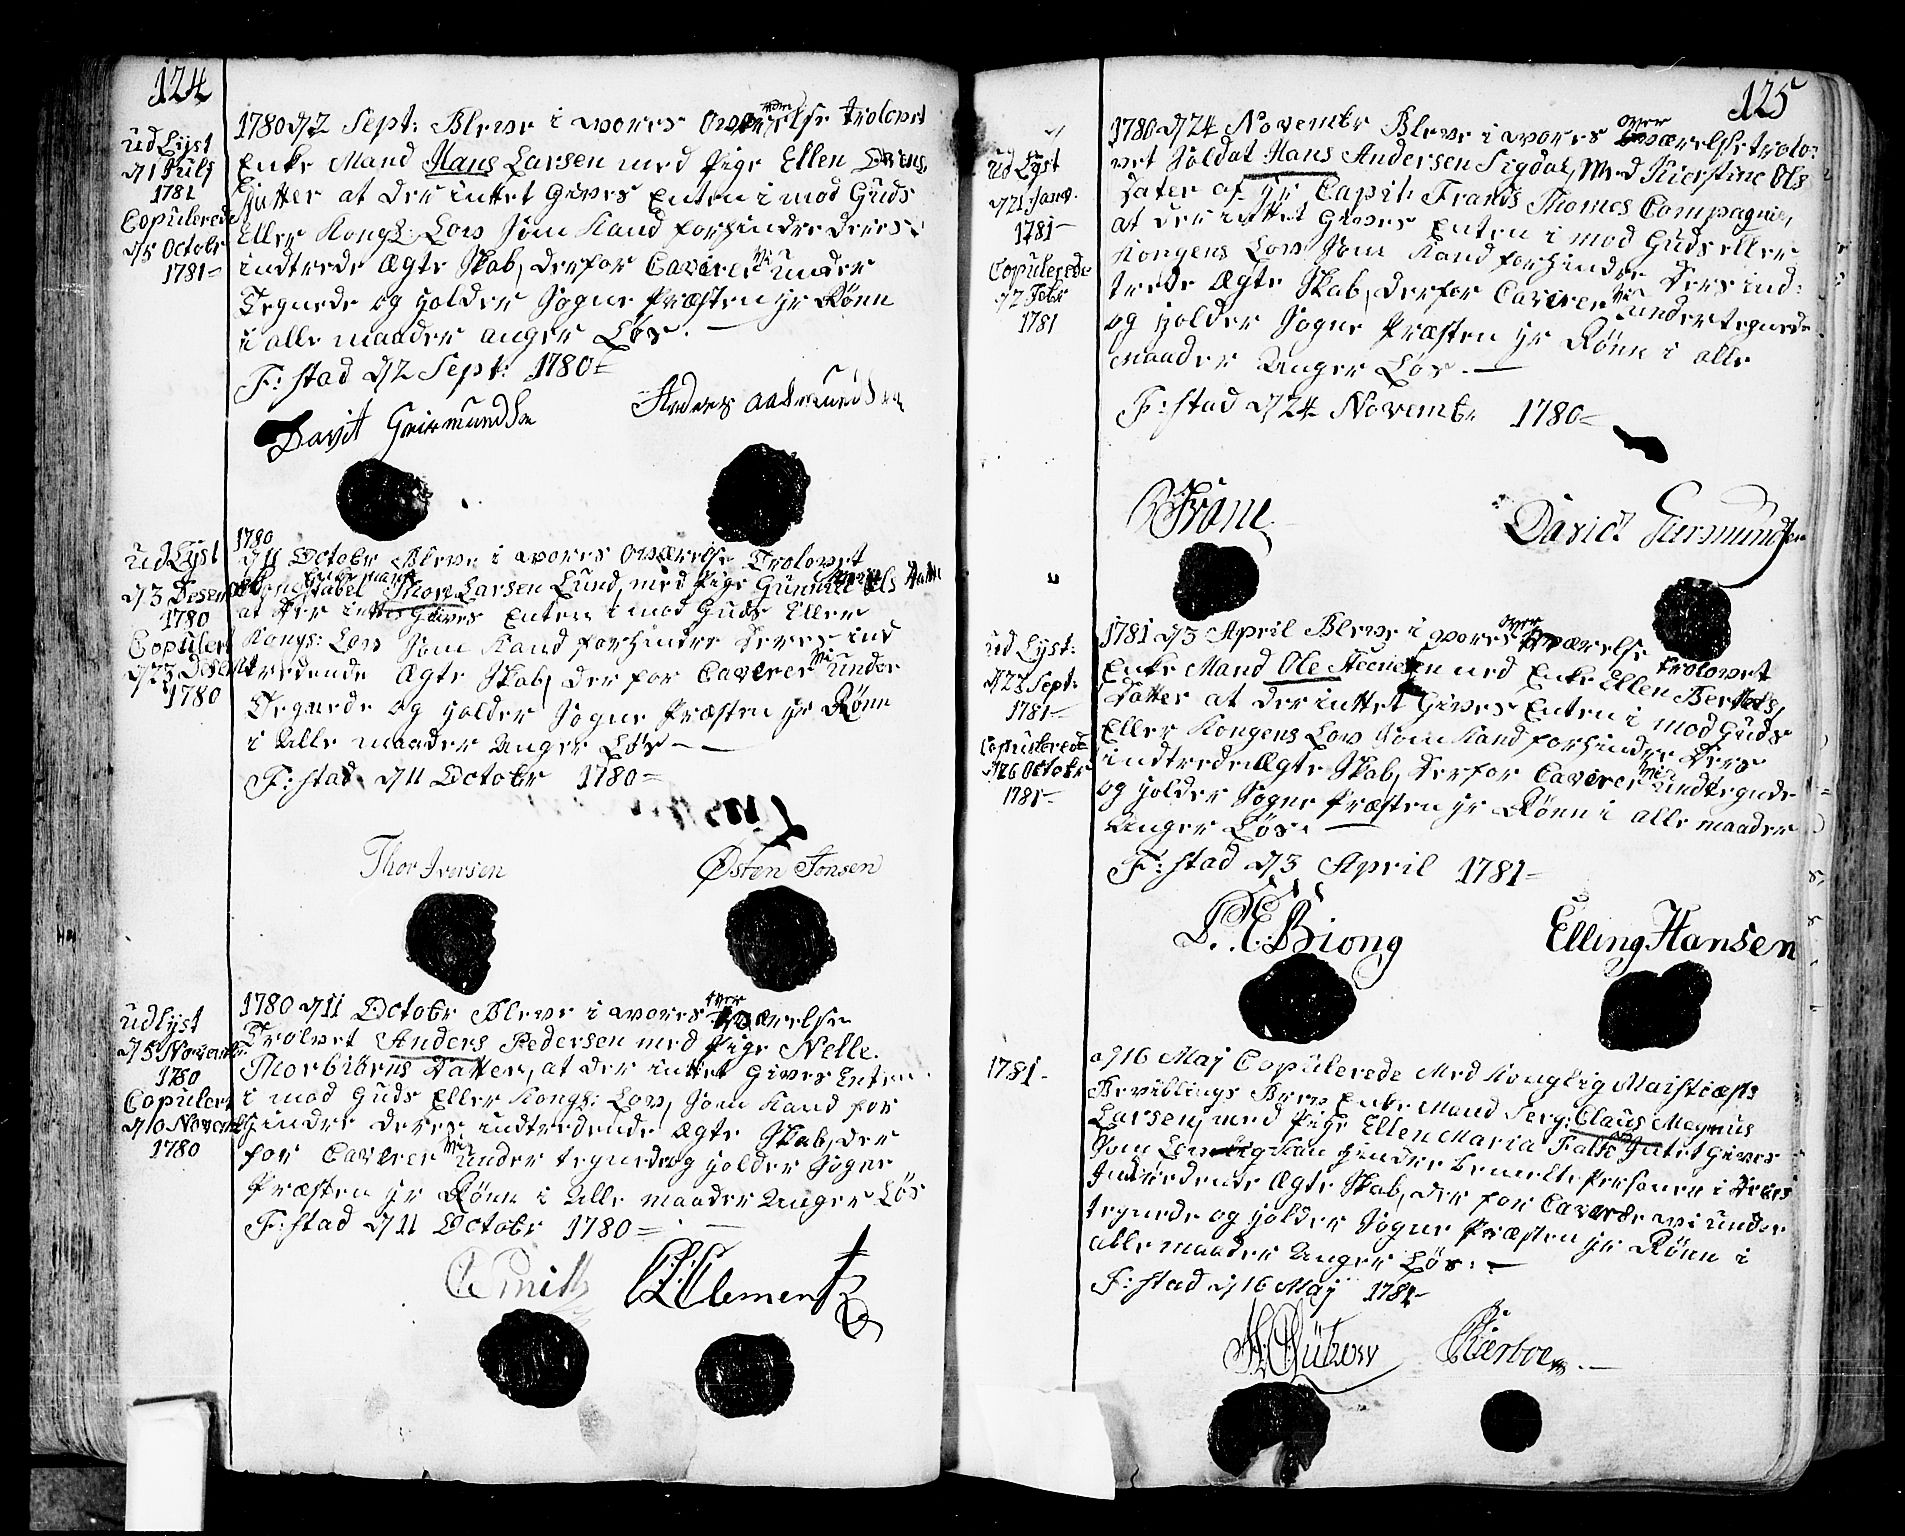 124
ud Lyst
d 1 July
1781
Copulerede
d 5 Octobr
1781
1780 d 2 Sept: Bleve i vores Overværelse trolovet
Enke Mand Hans Larsen med Pige Ellen
datter at der intet Gives Enten i mod Guds
Eller Kongs: Lov som Kand forhindre deres
indtrede Ægte Skab, derfor Caverer vi under
Tegnede og holder Sogne Præsten hr Rönn
i alle maader anger Løs.
F:stad d 2 Sept: 1780
Davit Geirmundsen
ud Lyst
d 3 Desem
1780
Copulert
d 23 Desem
1780
1780
d 11 Octobr Bleve i vores Overværelse Trolovet
Thore Larsen Lund, med Pige Gunnild Ols Datter
at der intet Gives Enten i mod Guds Eller
Kongs: Lov som Kand forhindre deres ind
tredende Ægte Skab, derfor Caverer vi under
Tegnede og holder Sogne Præsten hr Rönn
i Alle maader Anger Løs
F:stad d 11 Octobr 1780
Thor Iversen
Østen Jonsen
ud Lyst
d 5 Novembr
1780
Copulert
d 10 Novembr
1780
1780 d 11 Octobr Bleve i vores over værelse
Trolovet Anders Pedersen med Pige Nelle
Thorbiörns datter, at der intet Gives Enten
i mod Guds Eller Kongs: Lov, som Kand for
hindre deres indtredende Ægte Skab, der
for Caverer vi under tegnede og holder Sogne
Præsten hr Rönn i Alle maader Anger Løs
F:stad d 11 Octobr 1780
Clementz
125
ud Lyst
d 21 Janv.
1781
Copulerede
d 2 Febr
1781
1780 d 24 Novembr Bleve i vores over værelse trolo:
vet Soldat Hans Andersen Sigdal, Med Kierstine Ols
dater af hr Capit: Frands Thomes Compagnie,
at der intet Gives Enten i mod Guds eller
Kongens Lov som Kand forhindre deres ind:
trede Ægte Skab, derfor Caverer vi undertegnede
og holder Sogne Præsten hr Rönn i alle
maader Anger Løs.
F:stad d 24 Novembr 1780
David Geirmundsen
ud Lyst:
d 27 Sept:
1781
Copulerede
d 26 Octobr
1781
1781 d 3 April Bleve i vores over værelse trolovet
Enke Mand Ole Steensen med Enke Ellen Berthels
datter at der intet Gives Enten i mod Guds
Eller Kongens Lov som Kand forhindre Ders
indtrede Ægte Skab, derfor Caverer vi undtegnede
og holder Sogne Præsten hr Rönn i alle maader
Anger Løs.
F:stad d 3 April 1781
Biong
Elling Hansen
1781
d 16 Maj Copulerede Med Konglig Maistæts
Bevillings Brev Enke Mand Serg: Claus Magnus
Larsen, med Pige Ellen Maria Falk, Intet Gives
som Lovlig kan hindre bemelte Personer i deres
Indtredende Ægte Skab, der for Caverede vi under
tegnede og holder Sogne Præsten hr Rönn i
alle maader Anger Løs.
F:stad d 16 Maj 1781